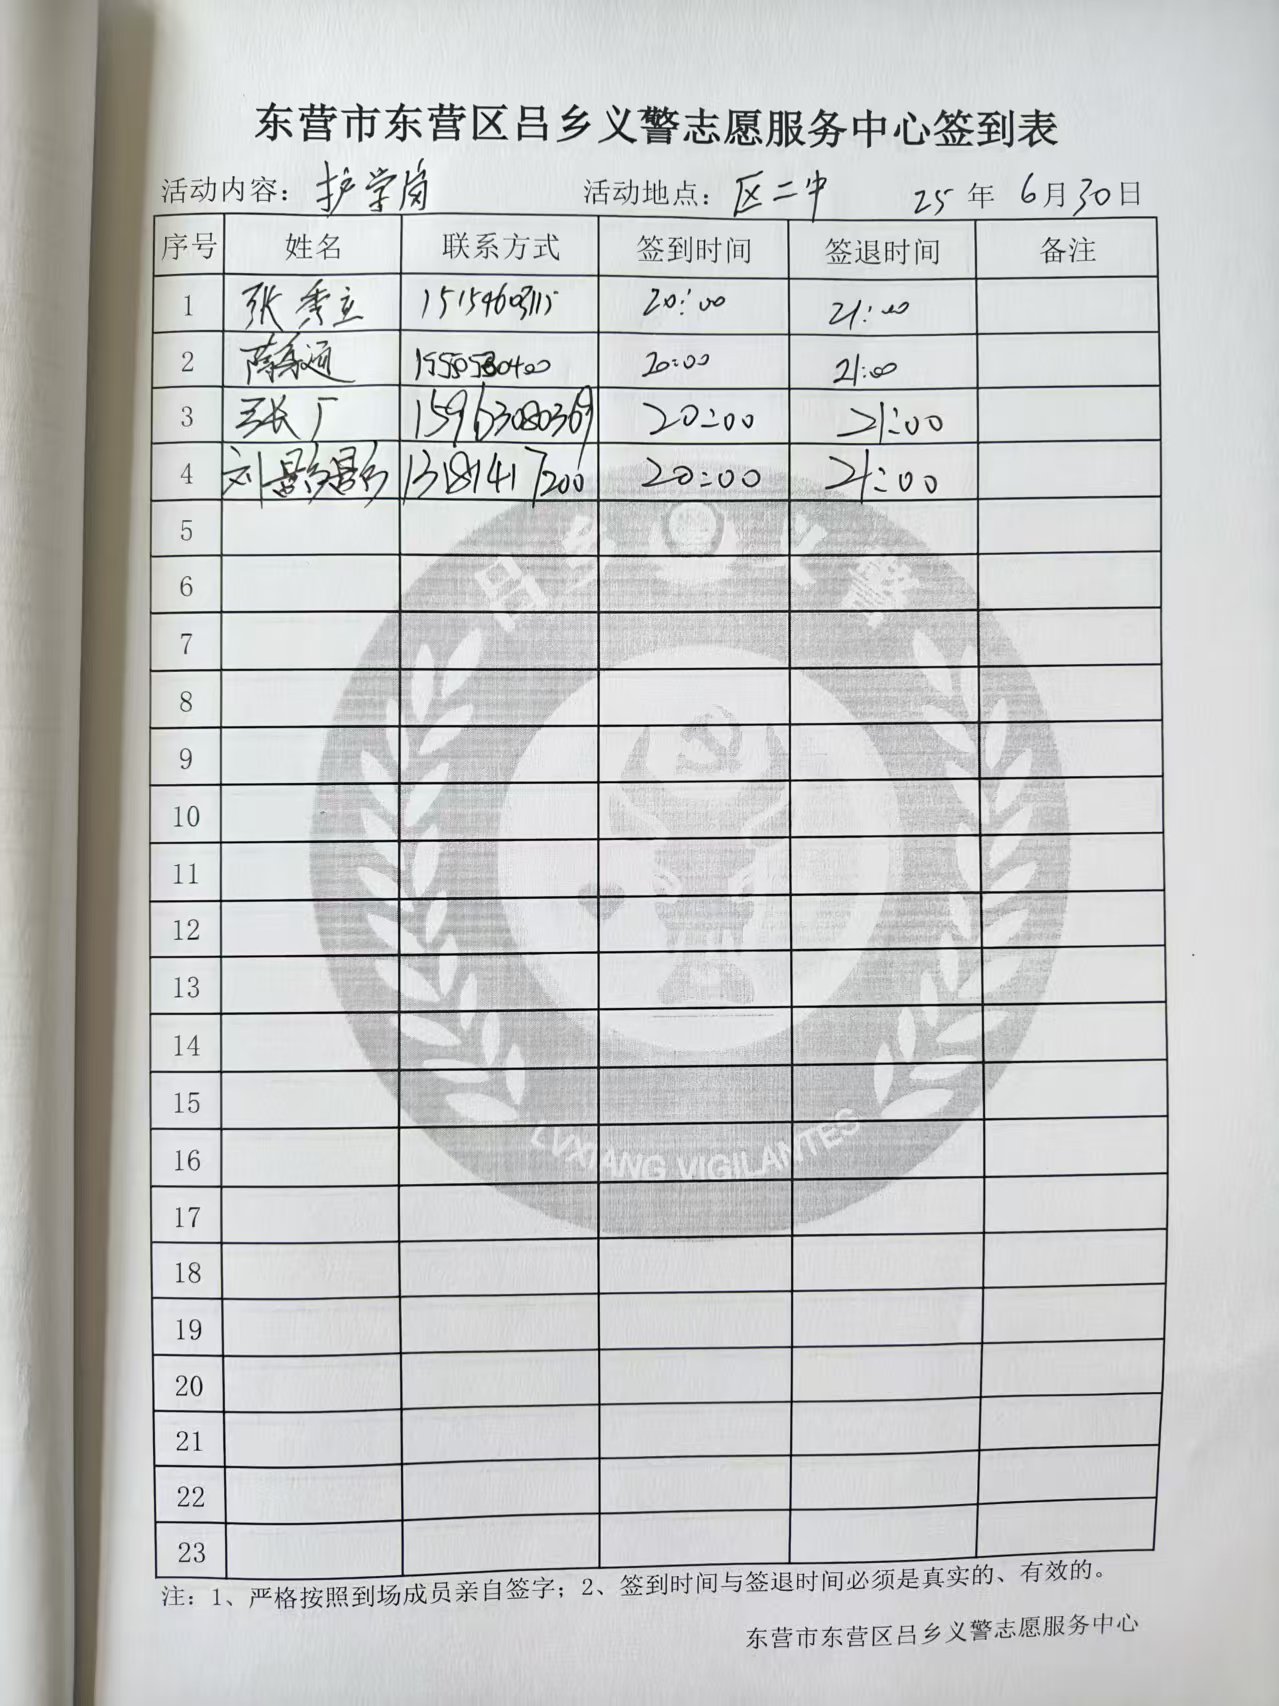 东营市东营区吕乡义警志愿服务中心签到表
活动内容：护学岗 活动地点：区二中 25年6月30日
序号 姓名 联系方式 签到时间 签退时间 备注
1 张秀立 20:00 21:00
2 20:00 21:00
3 张广 15963080369 20:00 21:00
4 刘影影 13181417200 20:00 21:00
5
6
7
8
9
10
11
12
13
14
15
16
17
18
19
20
21
22
23
吕乡义警
LVXIANG VIGILANTES
注：1、严格按照到场成员亲自签字；2、签到时间与签退时间必须是真实的、有效的。
东营市东营区吕乡义警志愿服务中心